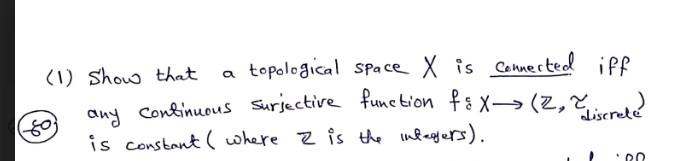 (1) Show that a topological space X is connected iff
any continuous surjective function f: X → (Z, τ discrete)
50
is constant (where Z is the integers).